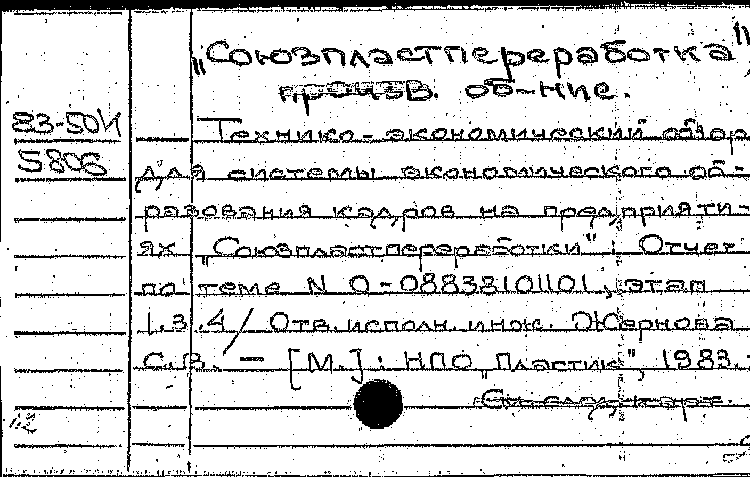 „Союзпластпереработка”,
произв. об-ние.
83-504
5806
Технико-экономический обзор
для системы экономического об-
разования кадров на предприяти-
ях „Союзпластпереработки": Отчет
по теме N 0-08833101101, этап
1.3.4/ Отв. исполн. инж. Жернова
С.В. — [М.]: НПО „Пластик", 1983.-
См. след. карт.